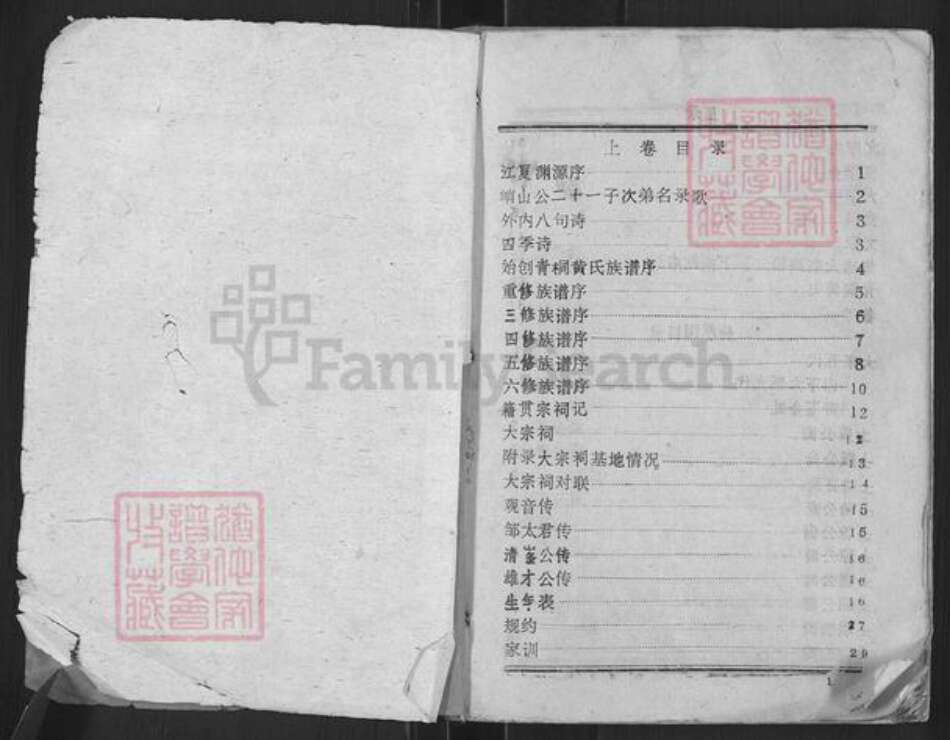 上卷目录
江夏渊源序 1
峭山公二十一子次弟名录歌 2
外内八句诗 3
四季诗 3
始创青桐黄氏族谱序 4
重修族谱序 5
三修族谱序 6
四修族谱序 7
五修族谱序 8
六修族谱序 10
籍贯宗祠记 12
大宗祠 12
附录大宗祠基地情况 13
大宗祠对联 14
观音传 15
邹太君传 15
清崟公传 16
雄才公传 16
生年表 16
规约 27
家训 29
1
FamilySearch